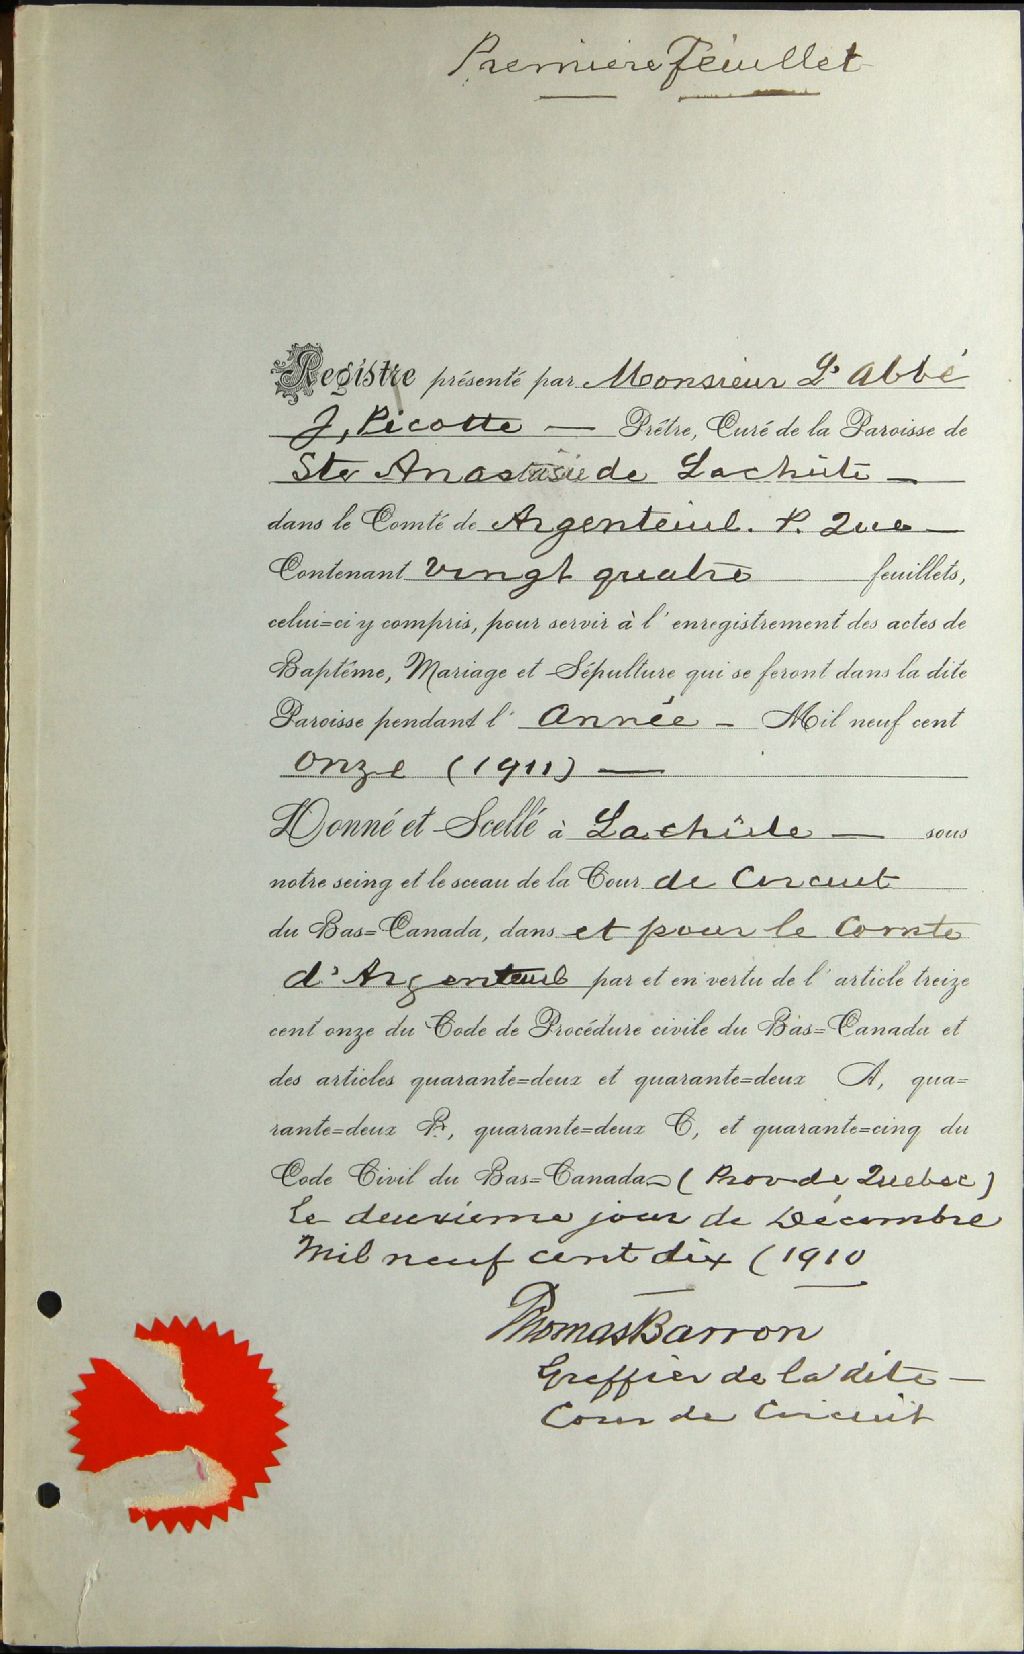 Premiere Feuillet
Registre présenté par Monsieur L'Abbé
J, Picotte — Prêtre, Curé de la Paroisse de
Ste Anastasie de Lachûte —
dans le Comté de Argenteuil. P. Que —
Contenant vingt quatre feuillets,
celui=ci y compris, pour servir à l'enregistrement des actes de
Baptême, Mariage et Sépulture qui se feront dans la dite
Paroisse pendant l' Année — Mil neuf cent
onze (1911) —
Donné et Scellé à Lachûte — sous
notre seing et le sceau de la Cour de Circuit
du Bas=Canada, dans et pour le Comte
d'Argenteuil par et en vertu de l'article treize
cent onze du Code de Procédure civile du Bas=Canada et
des articles quarante=deux et quarante=deux A, qua=
rante=deux B, quarante=deux C, et quarante=cinq du
Code Civil du Bas=Canada — (Prov de Quebec)
le deuxieme jour de Décembre
Mil neuf cent dix (1910
Thomas Barron
Greffier de la dite —
Cour de Circuit